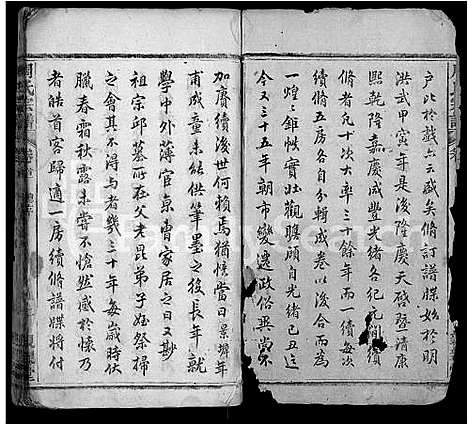 户比於戲亦云盛矣脩訂譜牒始於明
洪武甲寅年是後隆慶天啟暨清康
熙乾隆嘉慶咸豐光緒各紀元間續
脩者凡十次大率三十餘年而一續每次
續脩各分輯成卷以後合而為
一煌煌鉅帙實壯觀瞻顧自光緒己丑迄
今又三十五年朝市變遷政俗異常不
加賡續後世何賴焉猶憶當日景墀年
甫成童未能供筆墨之役長年就
學中外薄官東南家居之日又尠
祖宗邱墓所在父老昆弟子姪祭掃
之會其不淂与者幾三十年每歲時伏
臘春霜秋露未嘗不愴然感於懷乃
者皓首客歸適一房續脩譜牒將付